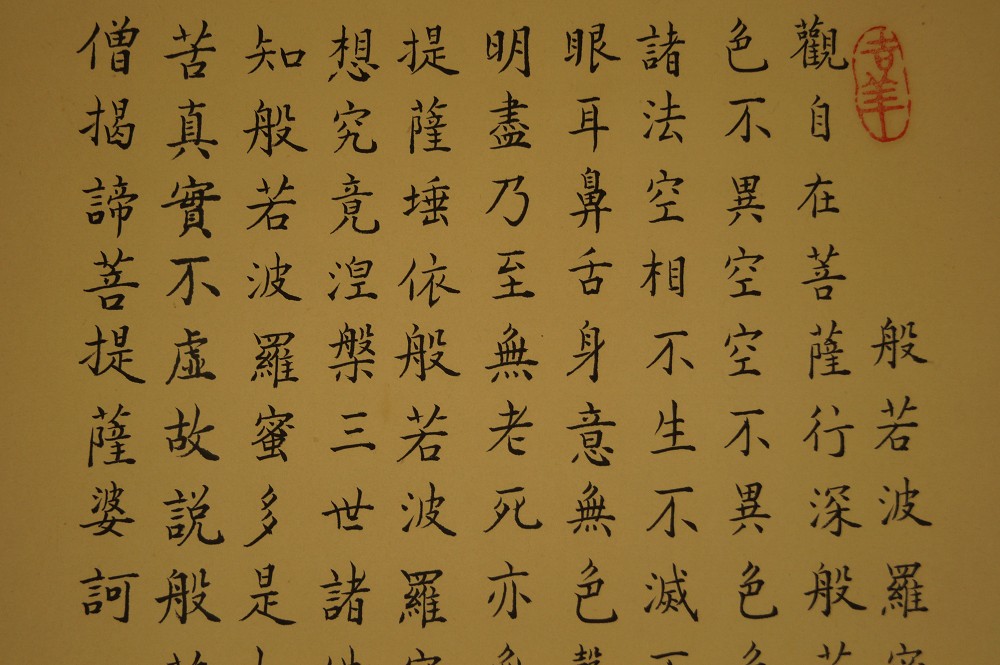 吉羊
般若波羅
觀自在菩薩行深般
色不異空空不異色
諸法空相不生不滅
眼耳鼻舌身意無色
明盡乃至無老死亦
提薩埵依般若波羅
想究竟涅槃三世諸
知般若波羅蜜多是
苦真實不虛故說般
僧揭諦菩提薩婆訶